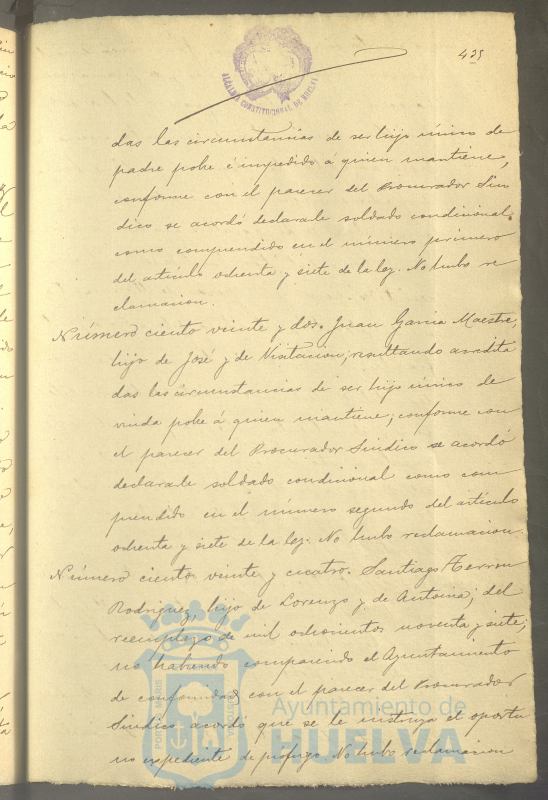 425
ALCALDIA CONSTITUCIONAL DE HUELVA
das las circunstancias de ser hijo único de
padre pobre é impedido á quien mantiene,
conforme con el parecer del Procurador Sin
dico se acordó declararle soldado condicional
como comprendido en el número primero
del artículo ochenta y siete de la ley. No hubo re
clamacion.
Número ciento veinte y dos. Juan Garcia Maestre,
hijo de José y de Visitacion; resultando acredita
das las circunstancias de ser hijo único de
viuda pobre á quien mantiene; conforme con
el parecer del Procurador Sindico se acordó
declararle soldado condicional como com
prendido en el número segundo del artículo
ochenta y siete de la ley. No hubo reclamacion.
Número ciento veinte y cuatro. Santiago Terron
Rodriguez, hijo de Lorenzo y de Antonia; del
reemplazo de mil ochocientos noventa y siete;
no habiendo comparecido el Ayuntamiento
de conformidad con el parecer del Procurador
Sindico acordó que se le instruya el oportu
no expediente de prófugo. No hubo reclamacion
Ayuntamiento de
HUELVA